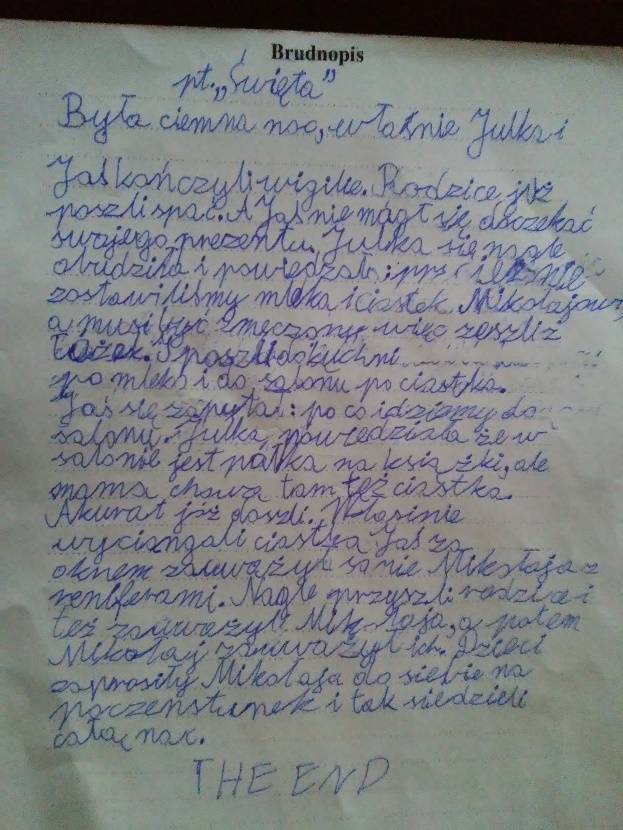 Brudnopis
pt. „Święta”
Była ciemna noc, właśnie Julka i
Jaś kończyli wigilie. Rodzice już
poszli spać. A Jaś nie mógł się doczekać
swojego prezentu. Julka się nagle
obudziła i powiedzała:
zostawiliśmy mleka i ciastek Mikołajowi,
a musi być zmęczony więc zeszli z
łóżek. I poszli do kuchni
po mleko i do salonu po ciastka.
Jaś się zapytał: po co idziemy do
salonu. Julka powiedziała że w
salonie jest półka na książki, ale
mama chowa tam też ciastka.
Akurat już doszli. Właśnie
wyciongali ciastka Jaś za
oknem zauważył sanie Mikołaja z
reniferami. Nagle przyszli rodzice i
też zauważyli Mikołaja, a potem
Mikołaj zauważył ich. Dzieci
zaprosiły Mikołaja do siebie na
poczenstunek i tak siedzieli
całą noc.
THE END